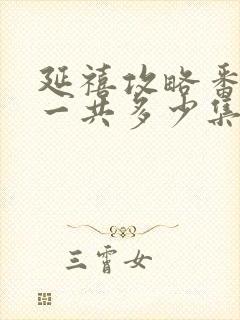 延禧攻略番
一共多少集
三霄女